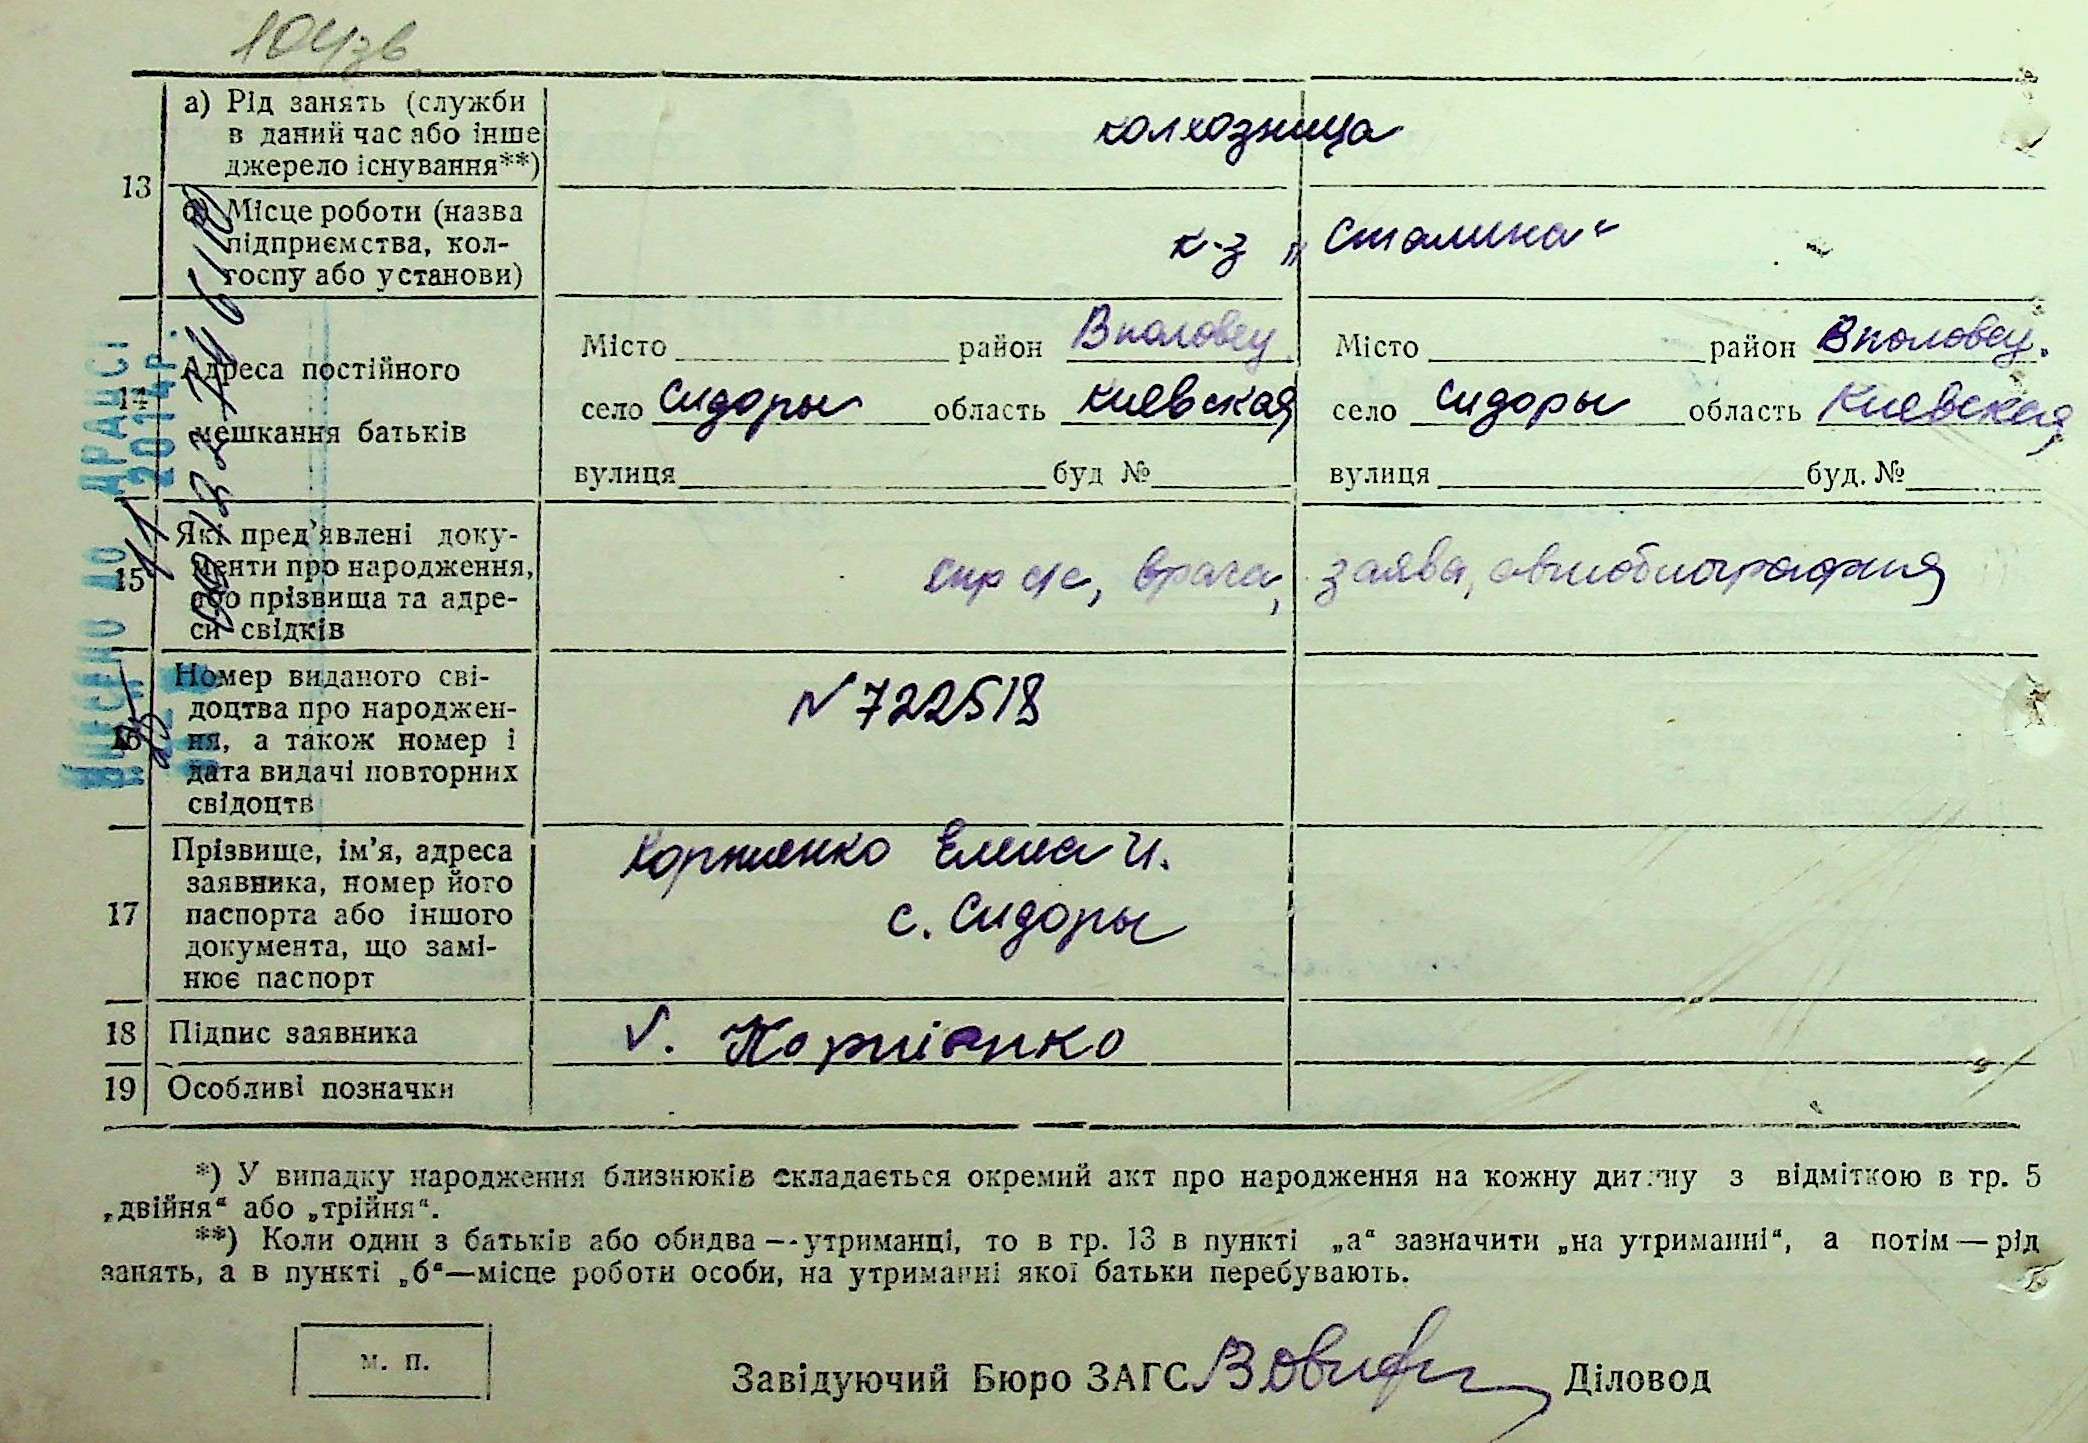 104зв
13
а) Рід занять (служби
в даний час або інше
джерело існування**)
колхозница
б) Місце роботи (назва
підприємства, кол-
госпу або установи)
к-з „Сталина“
14
Адреса постійного
мешкання батьків
Місто район Вполовец
село Сидоры область Киевская
вулиця буд №
Місто район Вполовец.
село Сидоры область Киевская
вулиця буд. №
15
Які пред’явлені доку-
менти про народження,
або прізвища та адре-
си свідків
спр с/с, врача, заява, автобиография
16
Номер виданого сві-
доцтва про народжен-
ня, а також номер і
дата видачі повторних
свідоцтв
N 722518
17
Прізвище, ім’я, адреса
заявника, номер його
паспорта або іншого
документа, що замі-
нює паспорт
Корниенко Елена И.
с. Сидоры
18
Підпис заявника
V. Корніенко
19
Особливі позначки
ВНЕСЕНО ДО ДРАЦСГ
2014р.
*) У випадку народження близнюків складається окремий акт про народження на кожну дитину з відміткою в гр. 5
„двійня“ або „трійня“.
**) Коли один з батьків або обидва—утриманці, то в гр. 13 в пункті „а“ зазначити „на утриманні“, а потім—рід
занять, а в пункті „б“—місце роботи особи, на утриманні якої батьки перебувають.
м. п.
Завідуючий Бюро ЗАГС Діловод